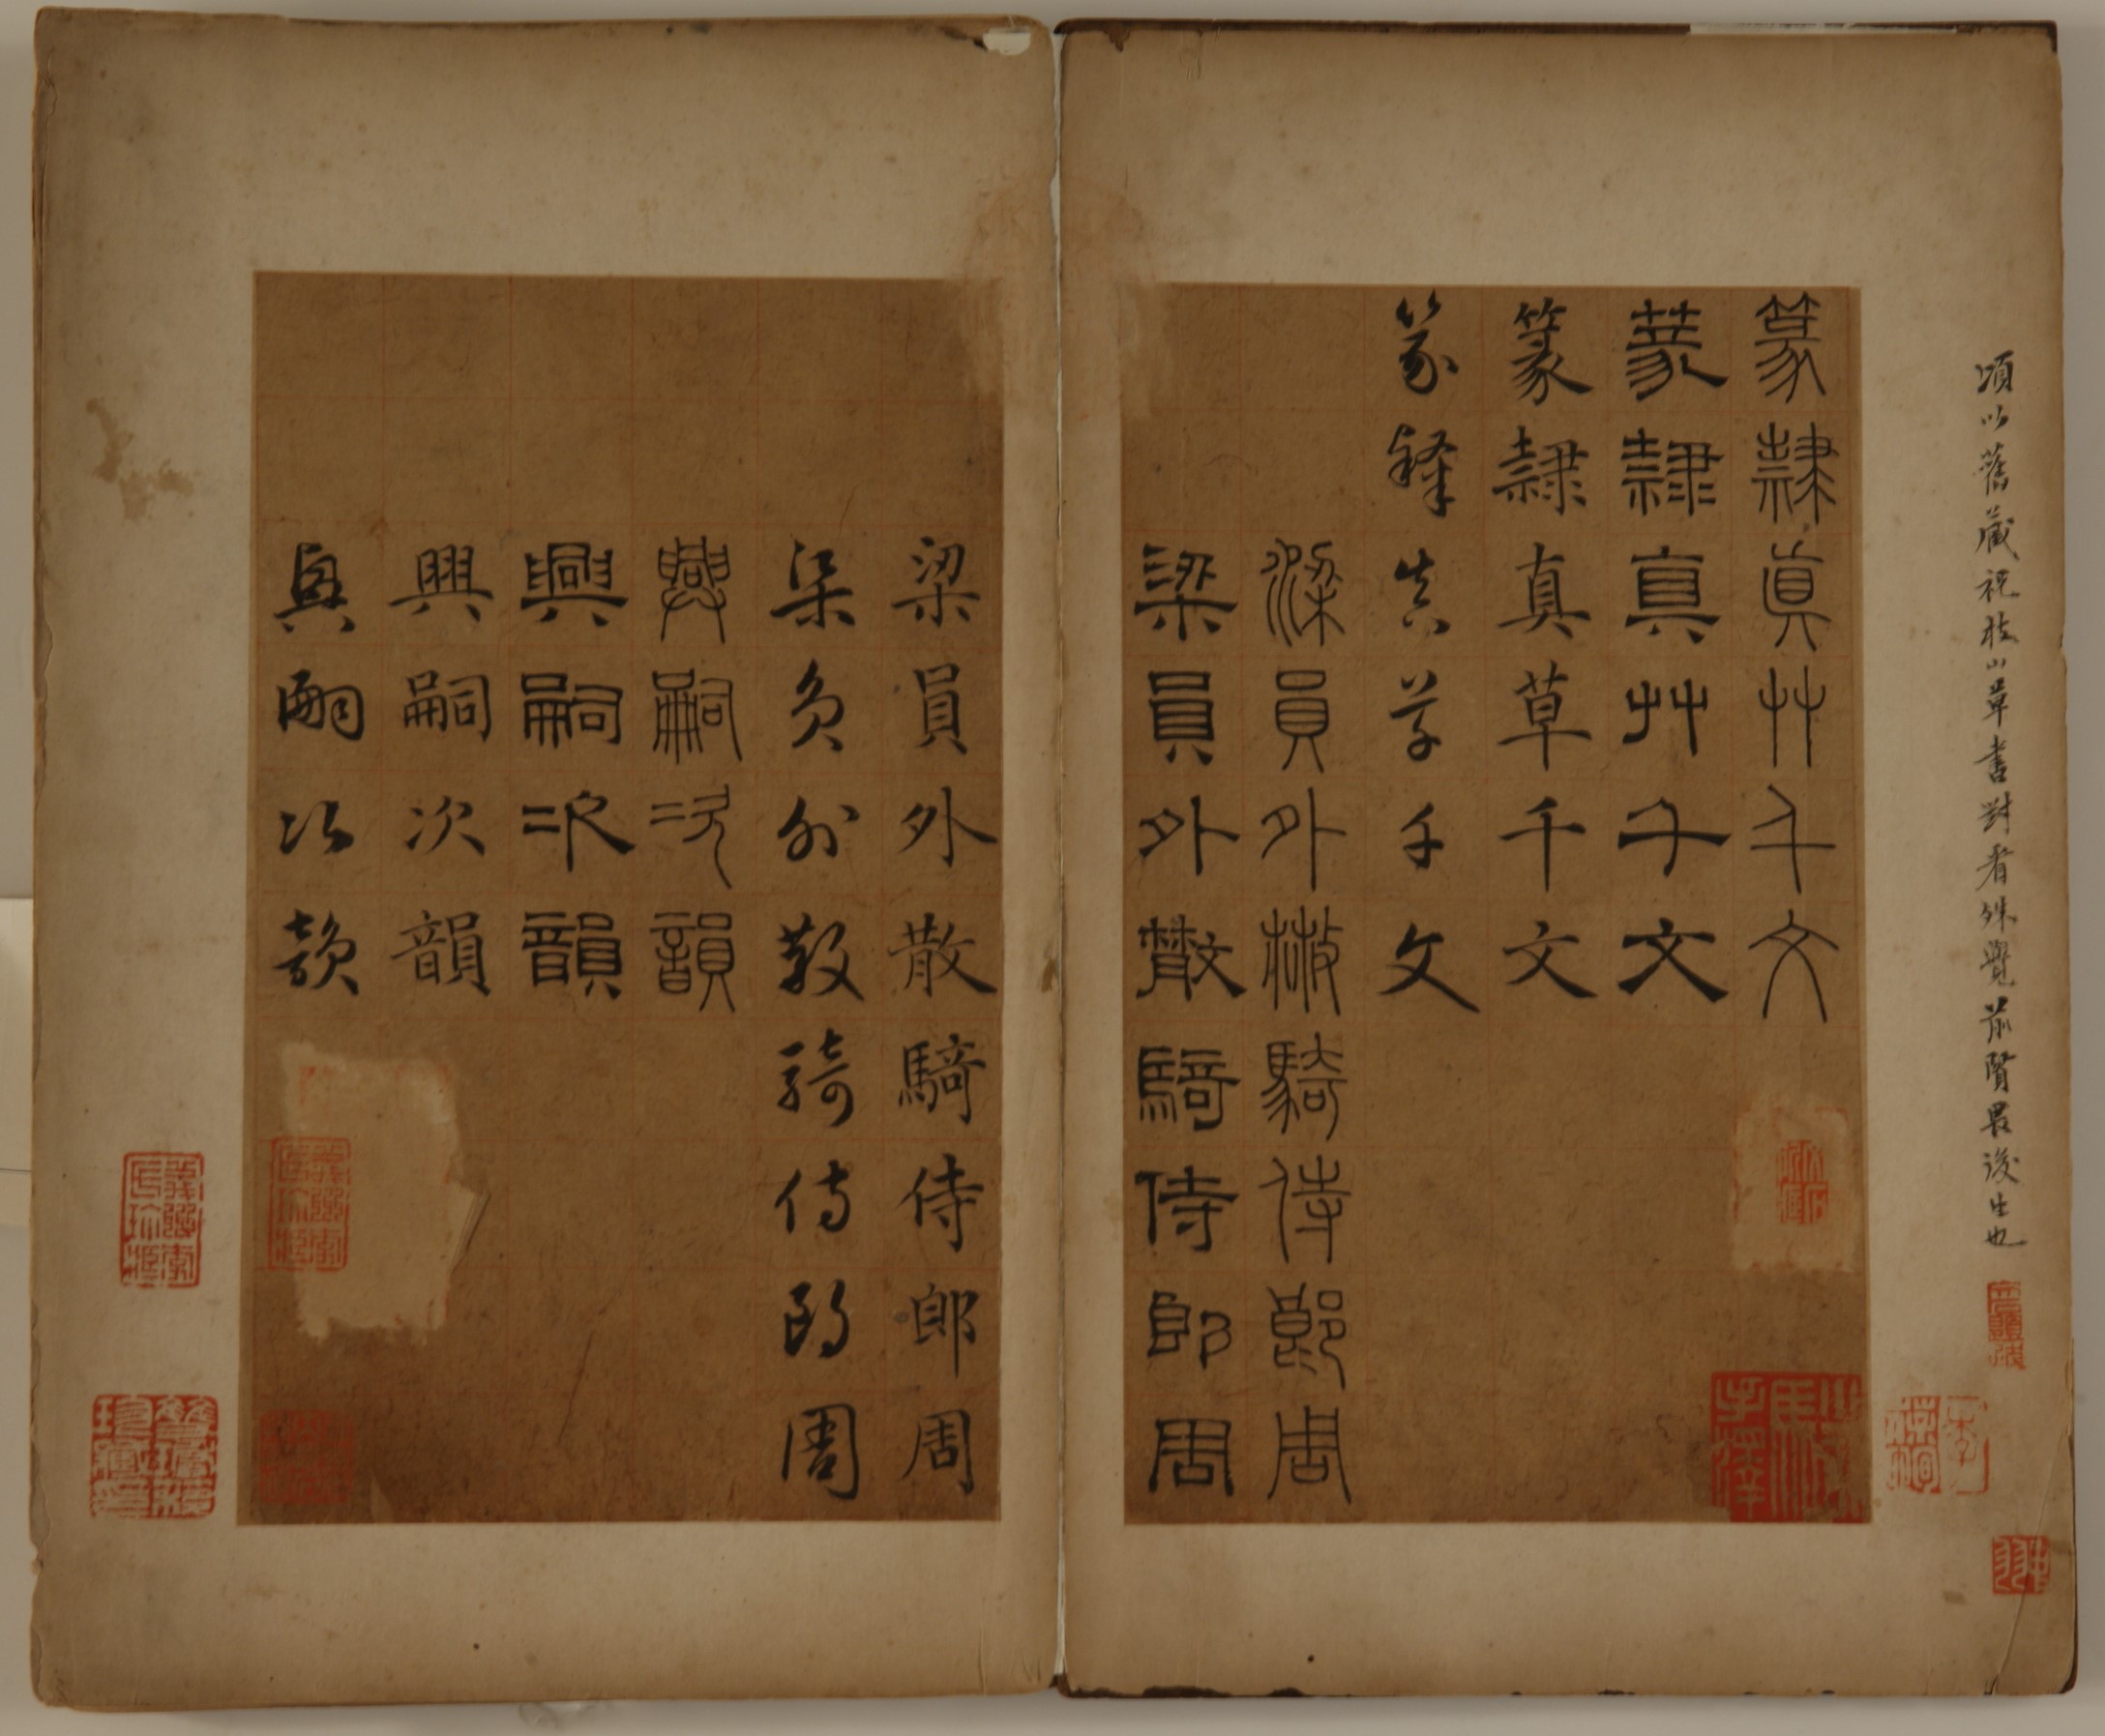 頃以舊藏祝枝山草書對看殊覺前賢畏後生也
篆隸真艸千文
篆隸真艸千文
篆隸真草千文
篆隸真草千文
梁員外散騎侍郎周
梁員外散騎侍郎周
梁員外散騎侍郎周
梁員外散騎侍郎周
興嗣次韻
興嗣次韻
興嗣次韻
興嗣次韻